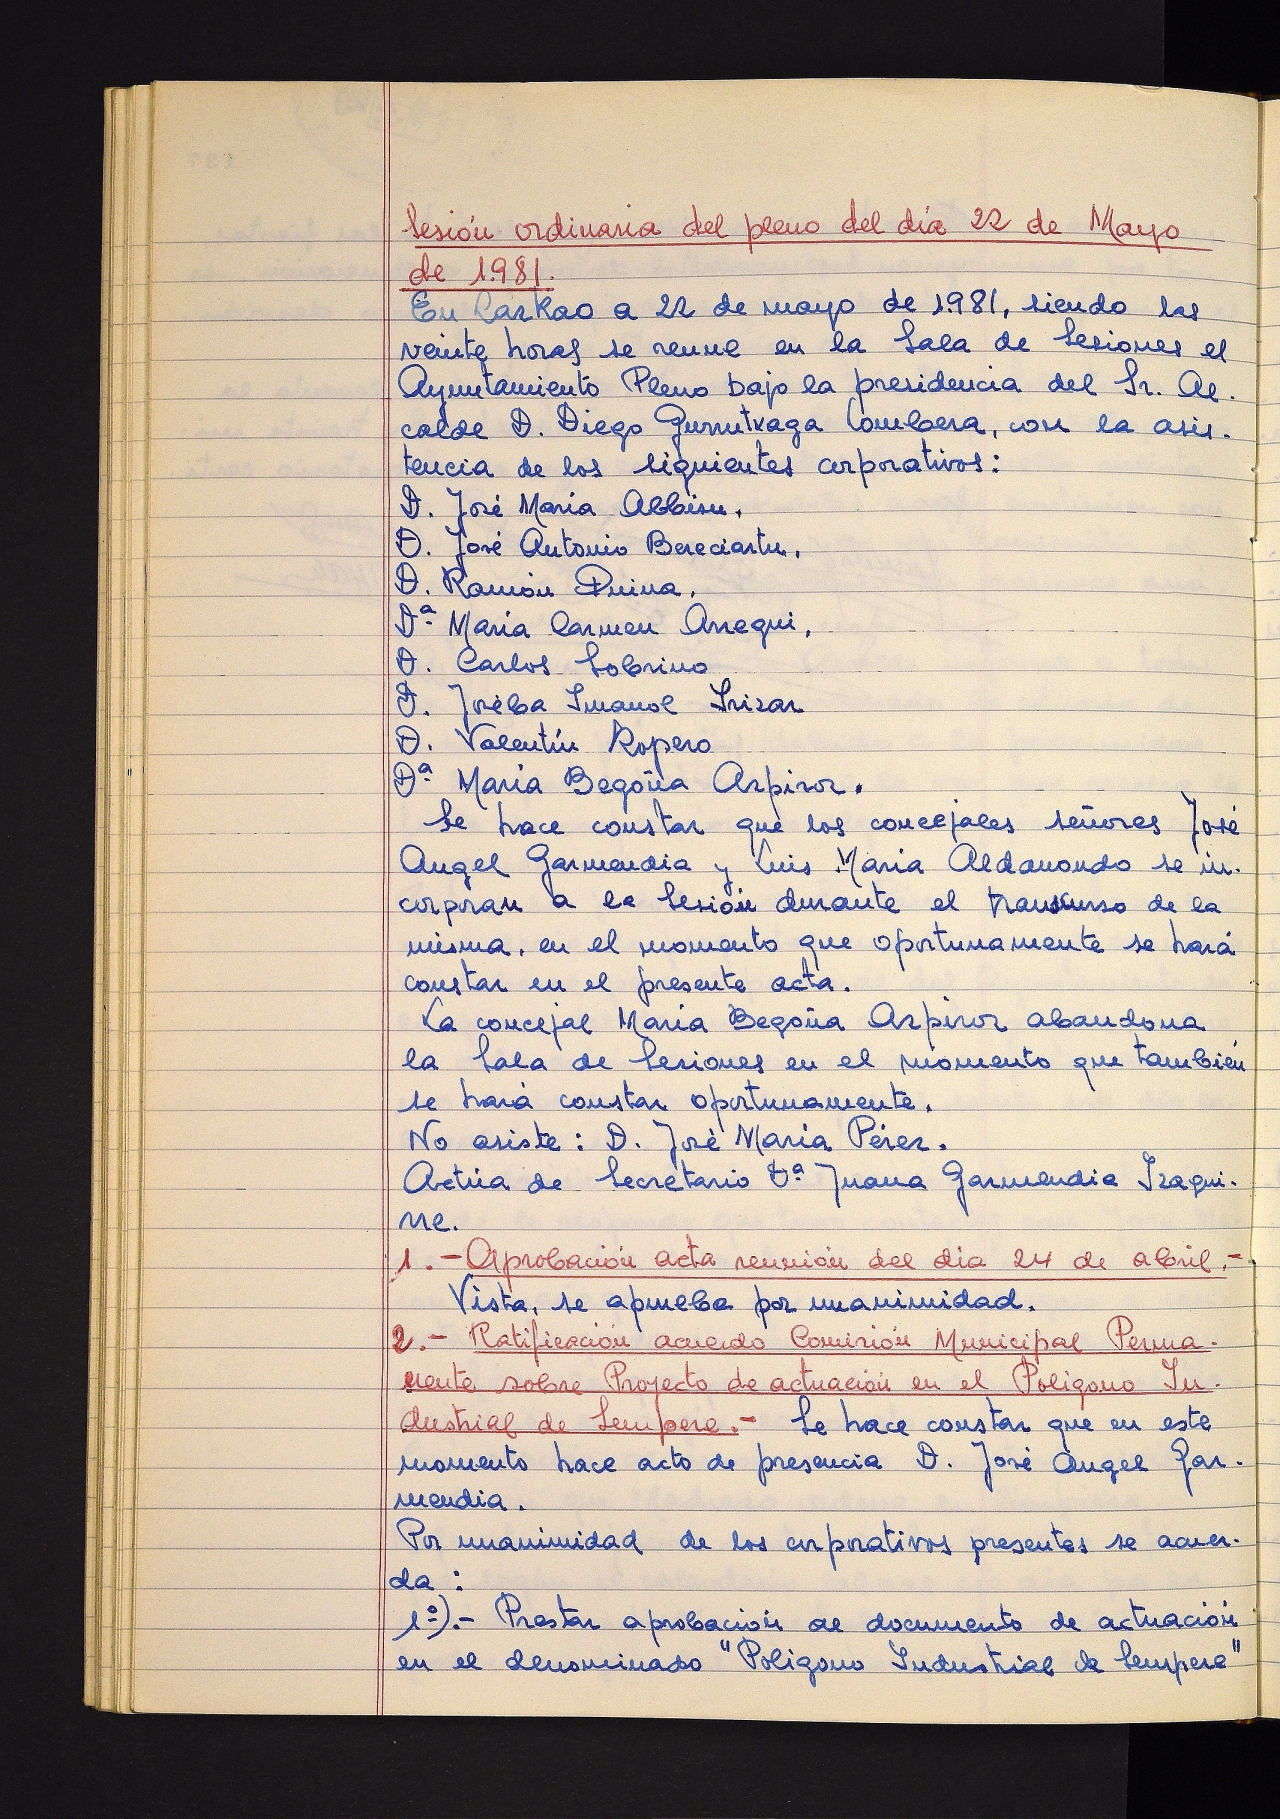 Sesión ordinaria del pleno del día 22 de Mayo
de 1.981.
En Lazkao a 22 de mayo de 1.981, siendo las
veinte horas se reune en la Sala de Sesiones el
Ayuntamiento Pleno bajo la presidencia del Sr. Al-
calde D. Diego Gurrutxaga Combera, con la asis-
tencia de los siguientes corporativos:
D. José María Albisu.
D. José Antonio Bereciartu.
D. Ramón
Dª María Carmen Arregui.
D. Carlos Sobrino
D. Joseba Imanol Irizar
D. Valentín Ropero
Dª María Begoña Azpiroz.
Se hace constar que los concejales señores José
Angel Garmendia y Luis María Aldanondo se in-
corporan a la Sesión durante el transcurso de la
misma, en el momento que oportunamente se hará
constar en el presente acta.
La concejal María Begoña Azpiroz abandona
la Sala de Sesiones en el momento que también
se hará constar oportunamente.
No asiste: D. José María Pérez.
Actúa de Secretario Dª Juana Garmendia Izagui-
rre.
1.- Aprobación acta reunión del día 24 de abril.-
Vista, se aprueba por unanimidad.
2.- Ratificación acuerdo Comisión Municipal Perma-
nente sobre Proyecto de actuación en el Polígono In-
dustrial de Sempere.- Se hace constar que en este
momento hace acto de presencia D. José Angel Gar-
mendia.
Por unanimidad de los corporativos presentes se acuer-
da:
1º).- Prestar aprobación al documento de actuación
en el denominado "Polígono Industrial de Sempere"